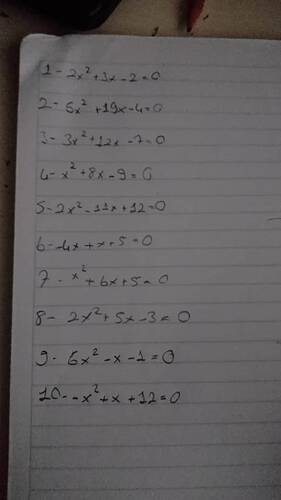 1- 2x²+3x-2=0
2- 5x²+19x-4=0
3- 3x²+12x-7=0
4- x²+8x-9=0
5- 2x²-11x+12=0
6- -4x+x+5=0
7- x²+6x+5=0
8- 2x²+5x-3=0
9- 6x²-x-1=0
10- -x²+x+12=0